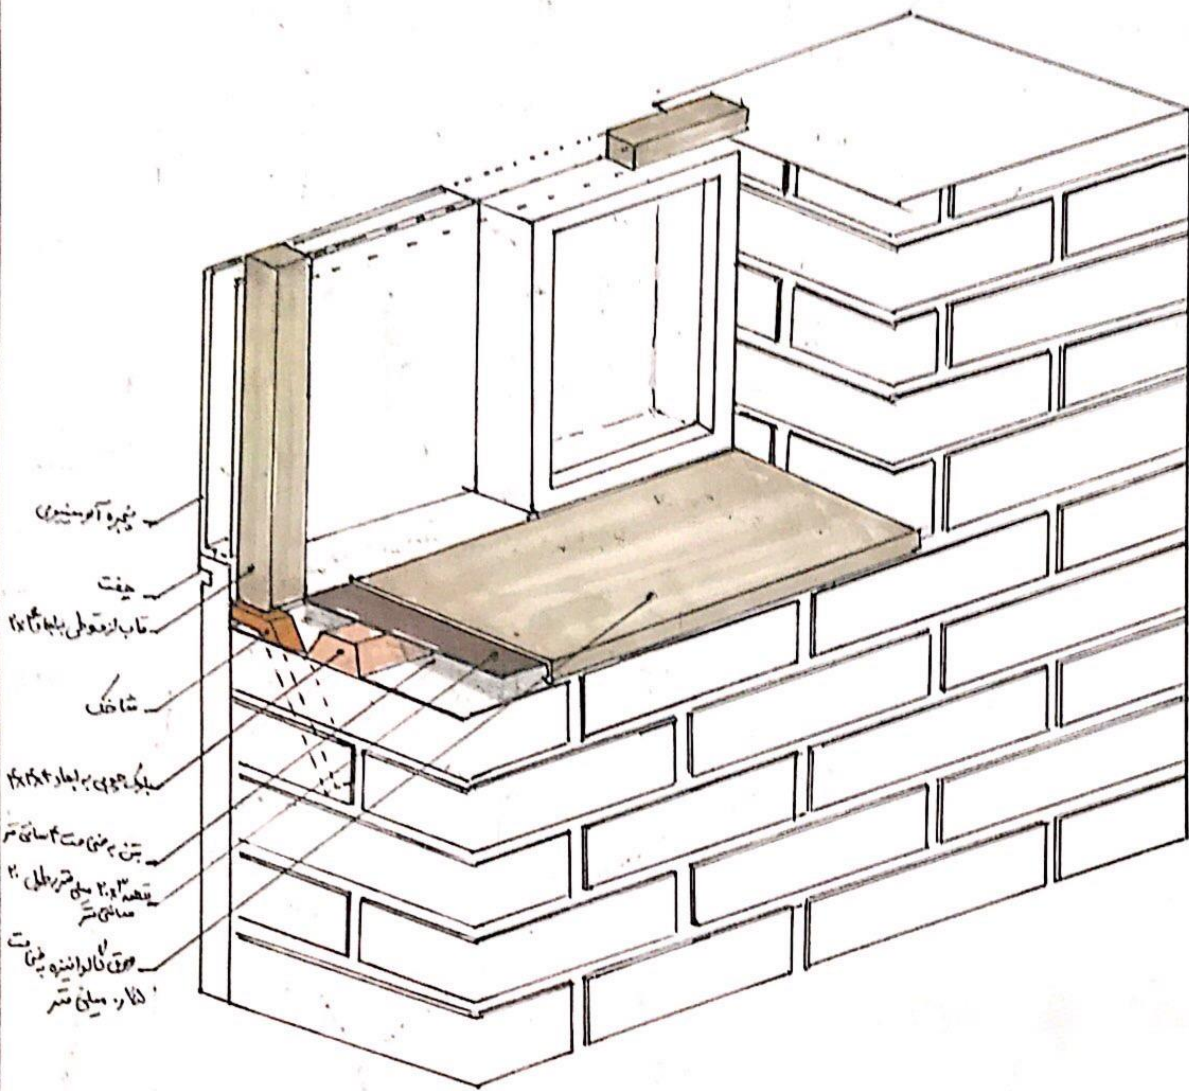 پنجره آلومینیومی
چفت
قاب از قوطی بابعاد ۴×۲
شاخک
بلوک چوبی به ابعاد ۴×۴×۴
بتن به ضخامت ۴ سانتی متر
تسمه ۳×۲۰ میلی متر بطول ۲۰
سانتی متر
ورق گالوانیزه به ضخامت
میلی متر